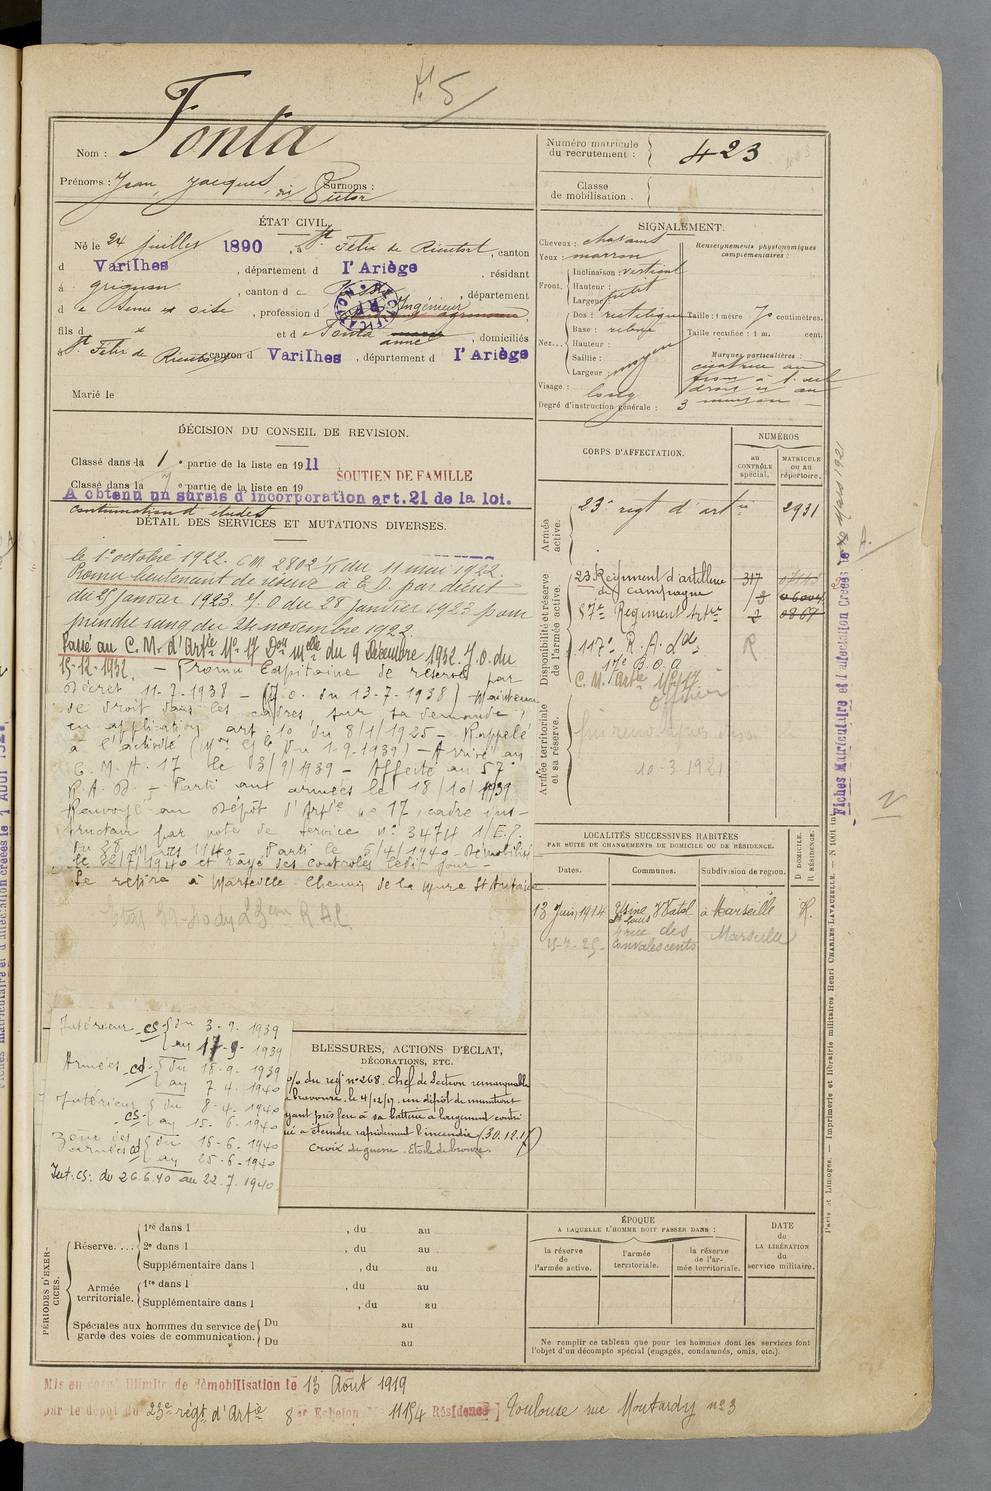 N° 5
Nom : Fonta
Prénoms : Jean, Jacques, dit Victor Surnoms :
Numéro matricule
du recrutement : 423
Classe
de mobilisation .
ÉTAT CIVIL.
Né le 24 juillet 1890, à St Félix de Rieutort, canton
d Varilhes, département d l'Ariège, résidant
à grignon, canton d e Poissy, département
d e Seine et oise, profession d Ingénieur agronome,
fils d et d e Fonta marie anne, domiciliés
à St Félix de Rieutort canton d Varilhes, département d l'Ariège
Marié le
SIGNALEMENT.
Cheveux : chatains
Yeux : marron
Front. Inclinaison : vertical
Hauteur :
Largeur : petit
Nez... Dos : rectiligne
Base : relevé
Hauteur :
Saillie :
Largeur : moyen
Visage : long
Degré d'instruction générale : 3
Renseignements physionomiques
complémentaires :
Taille : 1 mètre 70 centimètres.
Taille rectifiée : 1 m. cent.
Marques particulières :
cicatrice au
front à l'œil
droit et au
menton
DÉCISION DU CONSEIL DE REVISION.
Classé dans la 1e partie de la liste en 1911
SOUTIEN DE FAMILLE
Classé dans la 7e partie de la liste en 19
A obtenu un sursis d'incorporation art.21 de la loi.
continuation d'études
DÉTAIL DES SERVICES ET MUTATIONS DIVERSES.
le 1er octobre 1922. CM 2802 1/11 du 11 mai 1922.
Promu lieutenant de réserve à E.D. par décret
du 25 janvier 1923. J.O du 28 janvier 1923 pour
prendre rang du 24 novembre 1922
Passé au C. M. d'Artie N° 17 Don melle du 9 décembre 1932. J.O. du
15-12-1932. — Promu Capitaine de réserve par
Décret 11-7-1938 — (J.O. du 13-7-1938) Maintenu
de droit dans les cadres sur sa demande,
en application art. 10 du 8/1/1925 — Rappelé
à l'activité (Mon Gle du 1-9-1939) — Arrivé au
C. M. A. 17 le 03/9/1939 — Affecté au 57e
R. A. D. — Parti aux armées le 18/10/1939
Renvoyé au Dépôt d'Artie n° 17, cadre ins-
tructeur par note de service n° 3474 1/E.J.
du 28 Mars 1940 — Parti le 5/4/1940 — Démobilisé
le 22/7/1940 et rayé des contrôles ledit jour —
Se retire à Marseille Chemin de la Mure St Antoine
CORPS D'AFFECTATION.
NUMÉROS
au
CONTRÔLE
spécial.
MATRICULE
ou au
répertoire.
Armée
active.
23e regt d'artie 2931
Disponibilité et réserve
de l'armée active.
23 Régiment d'artillerie 317
de campagne
57e Régiment Artie
117e R. A. Lde R
17e B. O. A
C. M. Artie N° 17
officier
Armée territoriale
et sa réserve.
10-3-1921
LOCALITÉS SUCCESSIVES HABITÉES
PAR SUITE DE CHANGEMENTS DE DOMICILE OU DE RÉSIDENCE.
Dates. Communes. Subdivision de région. D DOMICILE. R RÉSIDENCE.
13 Juin 1914 Usine St Louis à Marseille R.
15-7-25- rue des Convalescents Marseille
Intérieur CS du 3-9-1939
au 17-9-1939
Armées CD du 18-9-1939
au 7-4-1940
Intérieur CS du 8-4-1940
au 15-6-1940
Zone des armées CD du 16-6-1940
au 25-6-1940
Int: CS: du 26.6.40 au 22.7.1940
BLESSURES, ACTIONS D'ÉCLAT,
DÉCORATIONS, ETC.
o/o du regt n° 268. Chef de Section remarquable
bravoure, le 4/12/17 un dépôt de munitions
yant pris feu à sa batterie a largement contri
ué a éteindre rapidement l'incendie (30.12.17)
Croix de guerre. Etoile de bronze.
PÉRIODES D'EXER-
CICES.
Réserve.... 1re dans l , du au
2e dans l , du au
Supplémentaire dans l , du au
Armée
territoriale. 1re dans l , du au
Supplémentaire dans l , du au
Spéciales aux hommes du service de
garde des voies de communication. Du au
Du au
ÉPOQUE
A LAQUELLE L'HOMME DOIT PASSER DANS :
la réserve
de
l'armée active.
l'armée
territoriale.
la réserve
de l'ar-
mée territoriale.
DATE
de
LA LIBÉRATION
du
service militaire.
Ne remplir ce tableau que pour les hommes dont les services font
l'objet d'un décompte spécial (engagés, condamnés, omis, etc.).
Mis en congé illimité de démobilisation le 13 Août 1919
par le dépôt du 23e régt d'Artie 8e Echelon N° 11154 Résidence Toulouse rue Moutardy n° 3
Fiches Matriculaire et d'affectation Créées le 20 Mars 1921
Paris et Limoges. — Imprimerie et librairie militaires Henri CHARLES-LAVAUZELLE. — N 1001